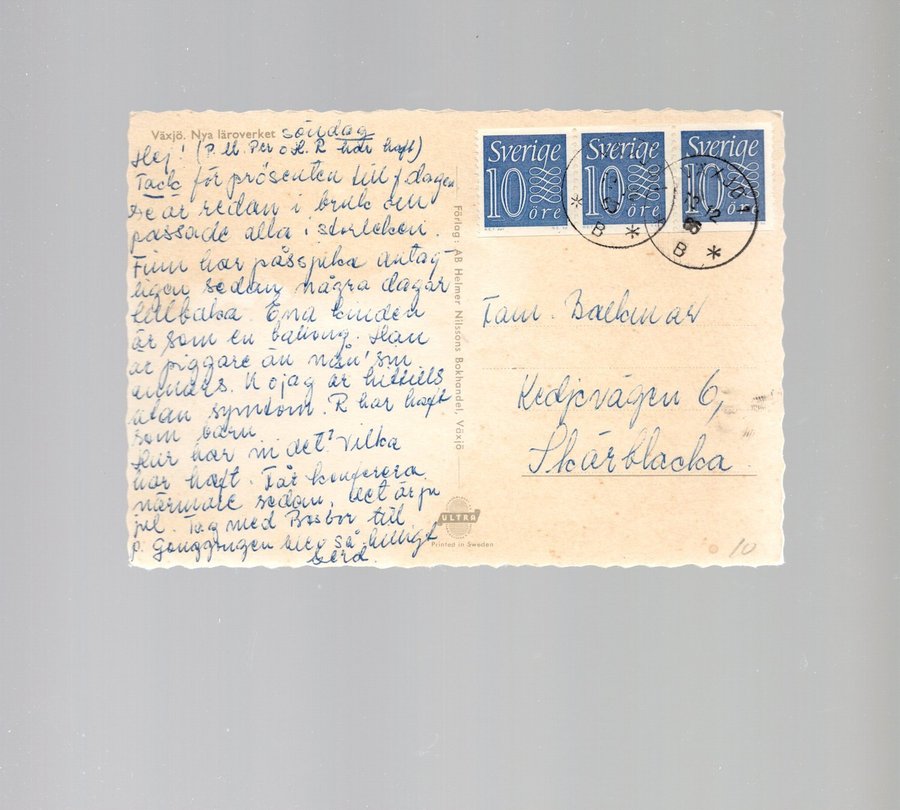 Växjö. Nya läroverket
söndag
Hej! (P.M. Per o H. R har haft)
Tack för presenten till f dagen
är redan i bruk
passade alla i storleken.
Finn har påssjuka antag-
ligen sedan några dagar
tillbaka. Ena kinden
är som en ballong. Han
är piggare än nån'sin
annars. K o jag är hittills
utan symtom. R har haft
som barn
Hur har ni det? Vilka
har haft. Får konferera
närmare sedan, det är ju
jul. Tag med till
blev så
Förlag: AB Helmer Nilssons Bokhandel, Växjö
ULTRA
Printed in Sweden
Sverige
10 öre
Sverige
10 öre
Sverige
10 öre
VÄXJÖ 1
B
B
Fam.
Kedjevägen 6,
Skärblacka
10